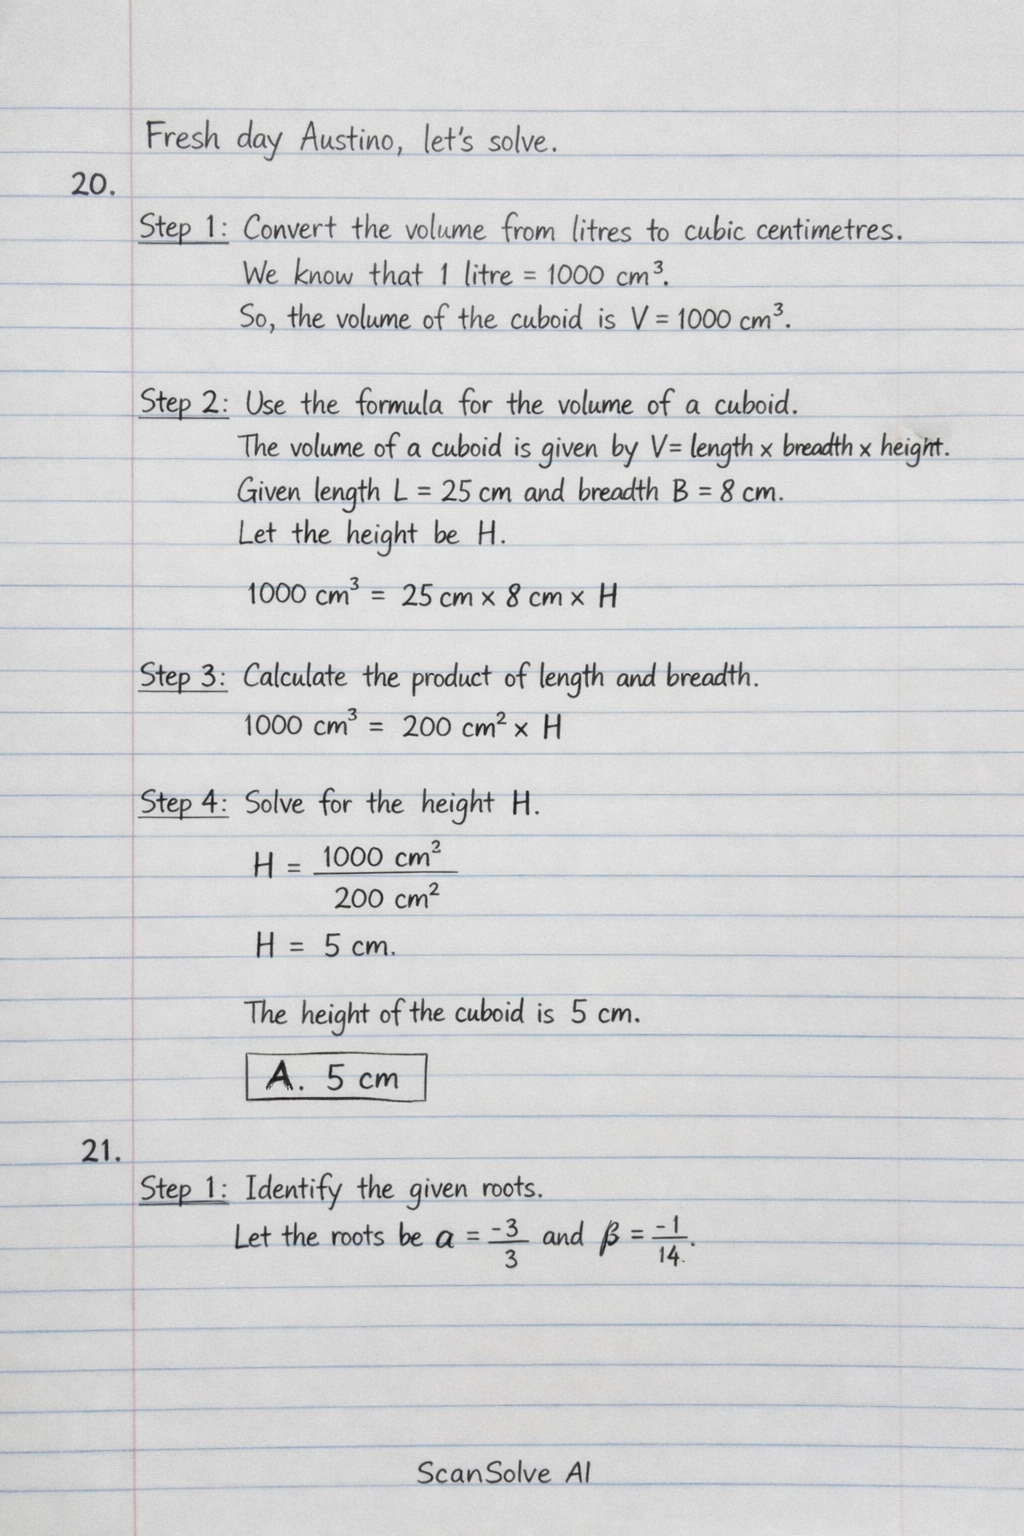 Fresh day Austino, let's solve.
20.
Step 1: Convert the volume from litres to cubic centimetres.
We know that 1 litre = 1000 cm³.
So, the volume of the cuboid is V = 1000 cm³.
Step 2: Use the formula for the volume of a cuboid.
The volume of a cuboid is given by V= length × breadth × height.
Given length L = 25 cm and breadth B = 8 cm.
Let the height be H.
1000 cm³ = 25 cm × 8 cm × H
Step 3: Calculate the product of length and breadth.
1000 cm³ = 200 cm² × H
Step 4: Solve for the height H.
H = 1000 cm² / 200 cm²
H = 5 cm.
The height of the cuboid is 5 cm.
A. 5 cm
21.
Step 1: Identify the given roots.
Let the roots be α = -3/3 and β = -1/14.
ScanSolve AI